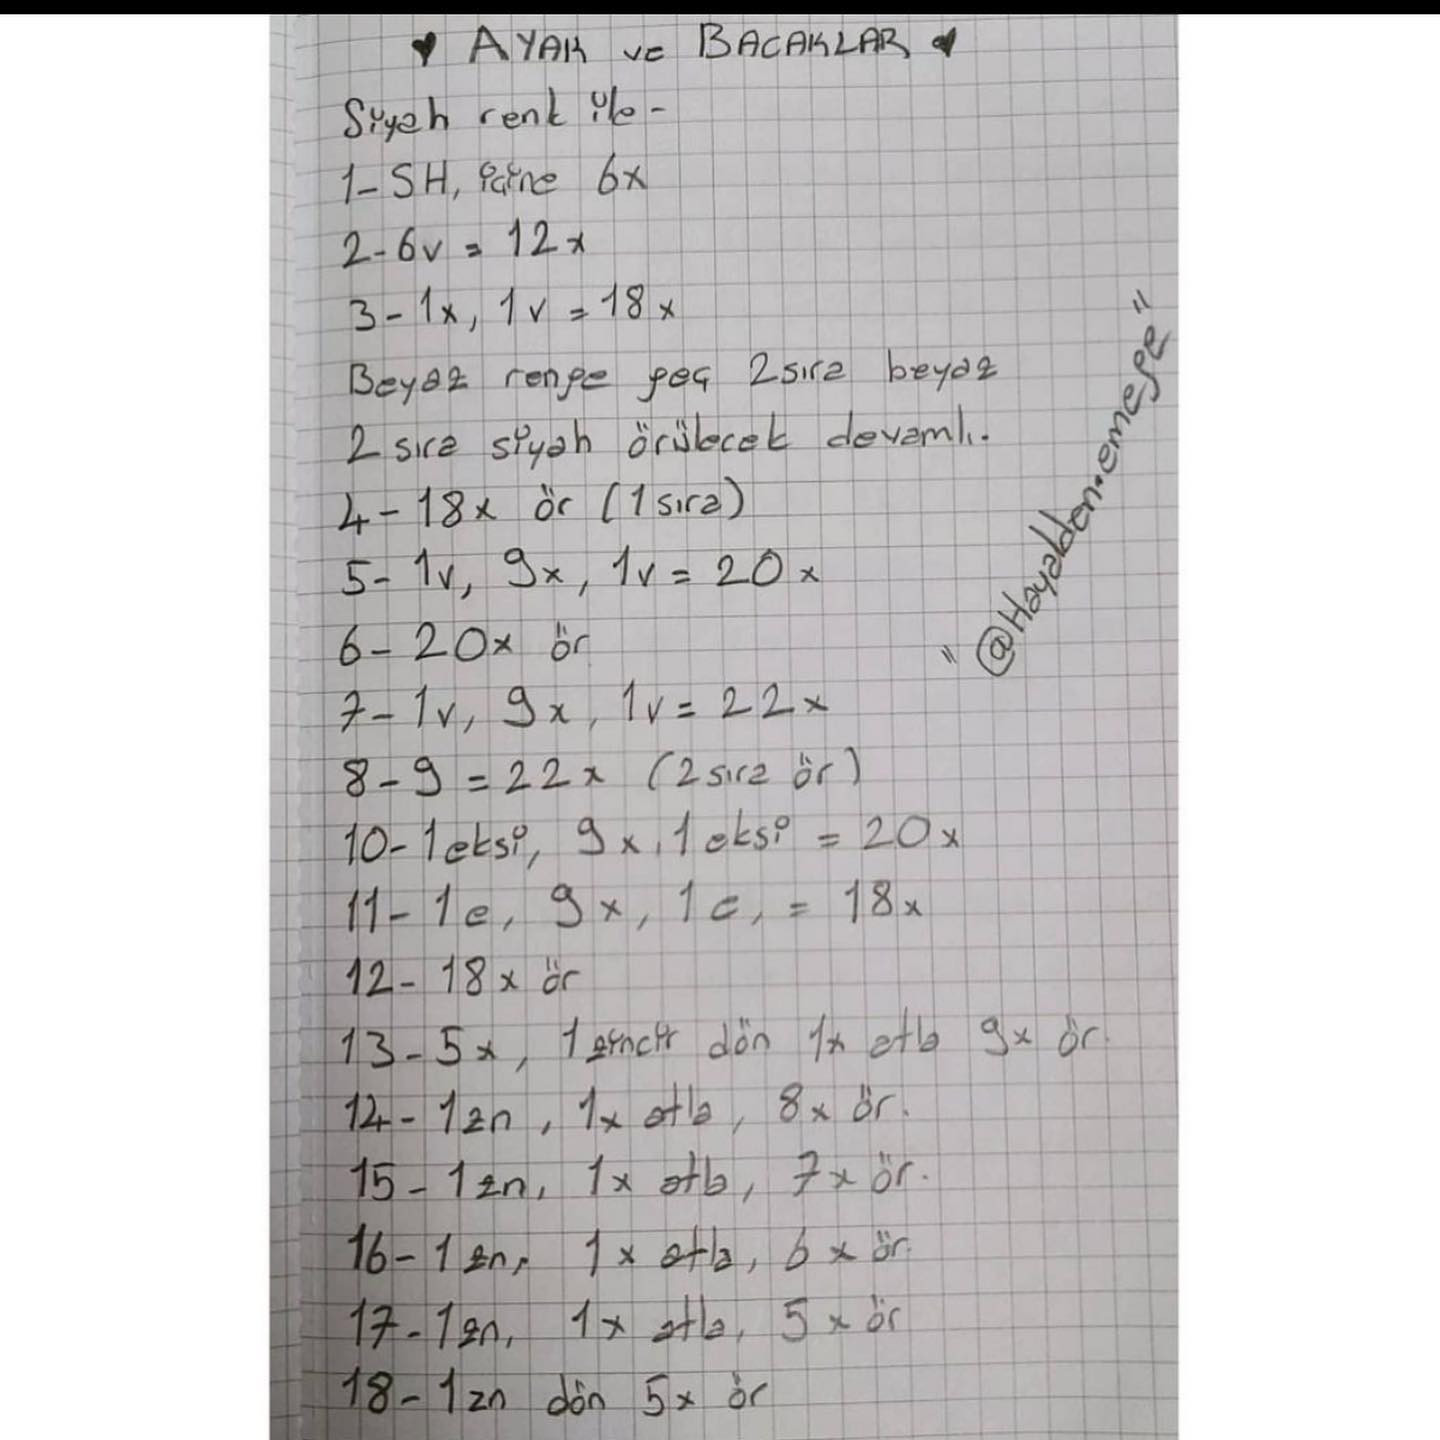 ♥ AYAK ve BACAKLAR ♥
Siyah renk ile -
1- SH, içine 6x
2- 6v = 12x
3- 1x, 1v = 18x
Beyaz renge geç 2 sıra beyaz
2 sıra siyah örülecek devamlı.
4- 18x ör (1 sıra)
5- 1v, 9x, 1v = 20x
6- 20x ör
7- 1v, 9x, 1v = 22x
8-9 = 22x (2 sıra ör)
10- 1 eksi, 9x, 1 eksi = 20x
11- 1e, 9x, 1e, = 18x
12- 18x ör
13- 5x, 1 zincir dön 1x atla 9x ör.
14- 1zn, 1x atla, 8x ör.
15- 1zn, 1x atla, 7x ör.
16- 1zn, 1x atla, 6x ör.
17- 1zn, 1x atla, 5x ör
18- 1zn dön 5x ör
"@Hayalden.emeğe"